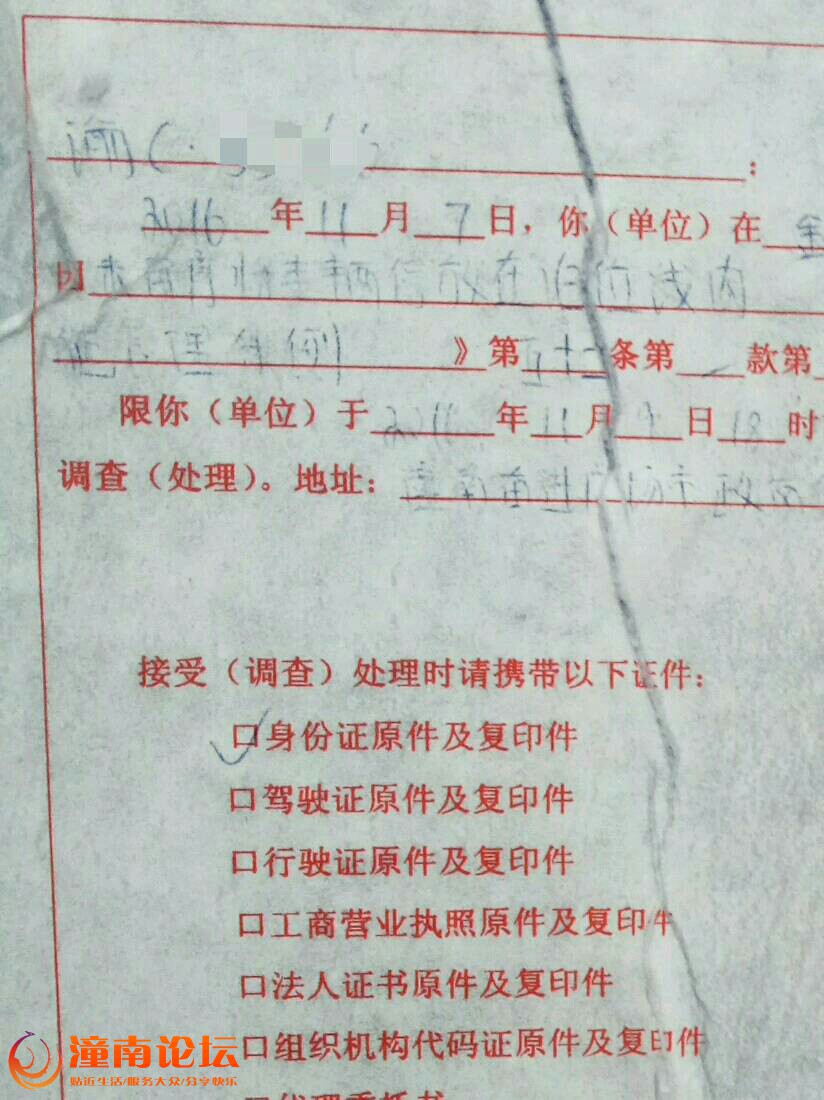 渝C
:
2016年11月7日，你（单位）在金
时未按序将车辆停放在泊位线内
管理条例》第五十二条第一款第
限你（单位）于2016年11月9日18时
调查（处理）。地址：潼南 广场市政
接受（调查）处理时请携带以下证件：
□身份证原件及复印件
□驾驶证原件及复印件
□行驶证原件及复印件
□工商营业执照原件及复印件
□法人证书原件及复印件
□组织机构代码证原件及复印件
□代理委托书
潼南论坛
贴近生活/服务大众/分享快乐